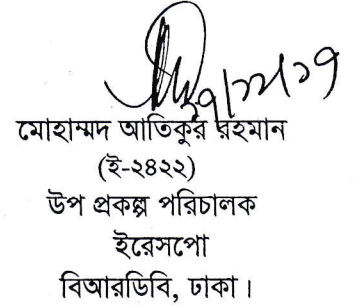 মোহাম্মদ আতিকুর রহমান
(ই-২৪২২)
উপ প্রকল্প পরিচালক
ইরেসপো
বিআরডিবি, ঢাকা।